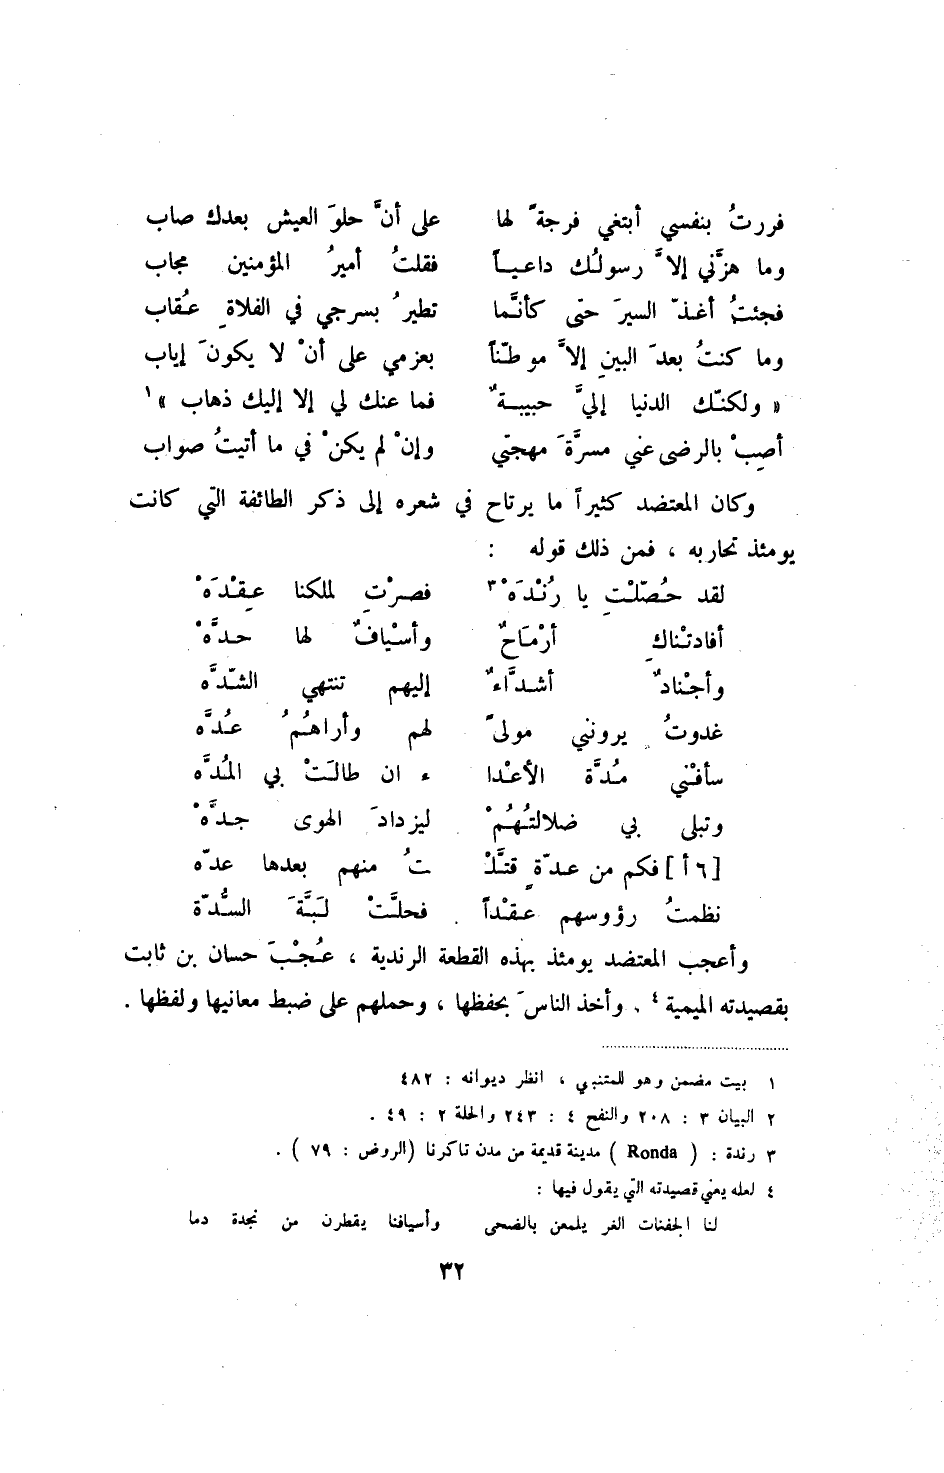 فررتُ بنفسي أبتغي فرجةً لها على أنَّ حلوَ العيش بعدك صاب
وما هزَّني إلاَّ رسولُك داعياً فقلتُ أميرُ المؤمنين مجاب
فجئتُ أغذّ السيرَ حتّى كأنَّما تطيرُ بسرجي في الفلاةِ عُقاب
وما كنتُ بعدَ البينِ إلاَّ موطّناً بعزمي على أنْ لا يكونَ إياب
« ولكنّك الدنيا إليَّ حبيبةٌ فما عنك لي إلا إليك ذهاب »١
أصِبْ بالرضى عني مسرَّةَ مهجتي وإنْ لم يكنْ في ما أتيتُ صواب
وكان المعتضد كثيراً ما يرتاح في شعره إلى ذكر الطائفة التي كانت
يومئذ تحاربه ، فمن ذلك قوله :
لقد حُصّلْتِ يا رُنْدَهْ٣ فصرْتِ لملكنا عِقْدَهْ
أفادتْناكِ أرْمَاحٌ وأسْيافٌ لها حدَّهْ
وأجْنادٌ أشدَّاءٌ إليهم تنتهي الشّدَّه
غدوتُ يرونني مولىً لهم وأراهُمُ عُدَّه
سأفْني مُدَّة الأعْدا ء ان طالَتْ بي المُدَّه
وتبلى بي ضلالتُهُمْ ليزدادَ الهوى جدَّهْ
[٦ أ] فكم من عدّةٍ قتَّلْ تُ منهم بعدها عدّه
نظمتُ رؤوسهم عقْداً فحلَّتْ لَبَّةَ السُّدّة
وأعجب المعتضد يومئذ بهذه القطعة الرندية ، عُجْبَ حسان بن ثابت
بقصيدته الميمية ٤ . وأخذ الناسَ بحفظها ، وحملهم على ضبط معانيها ولفظها .
١ بيت مضمن وهو للمتنبي ، انظر ديوانه : ٤٨٢
٢ البيان ٣ : ٢٠٨ والنفح ٤ : ٢٤٣ والحلة ٢ : ٤٩ .
٣ رندة : ( Ronda ) مدينة قديمة من مدن تاكرنا (الروض : ٧٩ ) .
٤ لعله يعني قصيدته التي يقول فيها :
لنا الجفنات الغر يلمعن بالضحى وأسيافنا يقطرن من نجدة دما
٣٢